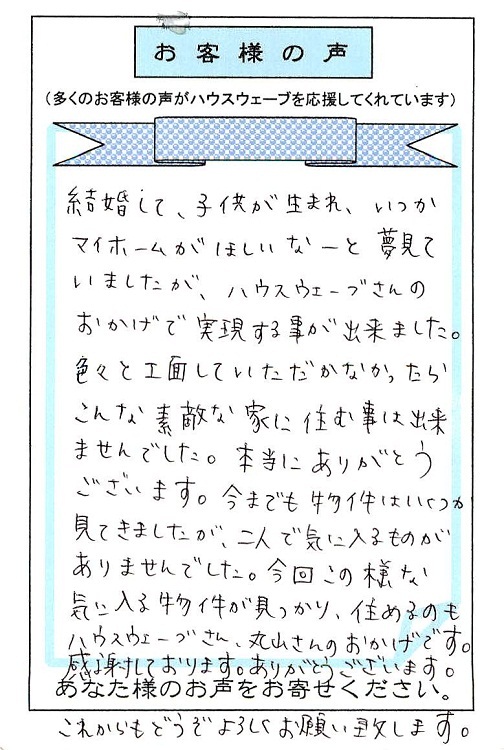 お客様の声
（多くのお客様の声がハウスウェーブを応援してくれています）
結婚して、子供が生まれ、いつか
マイホームがほしいなーと夢見て
いましたが、ハウスウェーブさんの
おかげで実現する事が出来ました。
色々と工面していただかなかったら
こんな素敵な家に住む事は出来
ませんでした。本当にありがとう
ございます。今までも物件はいくつか
見てきましたが、二人で気に入るものが
ありませんでした。今回この様な
気に入る物件が見つかり、住めるのも
ハウスウェーブさん、丸山さんのおかげです。
感謝しております。ありがとうございます。
あなた様のお声をお寄せください。
これからもどうぞよろしくお願い致します。